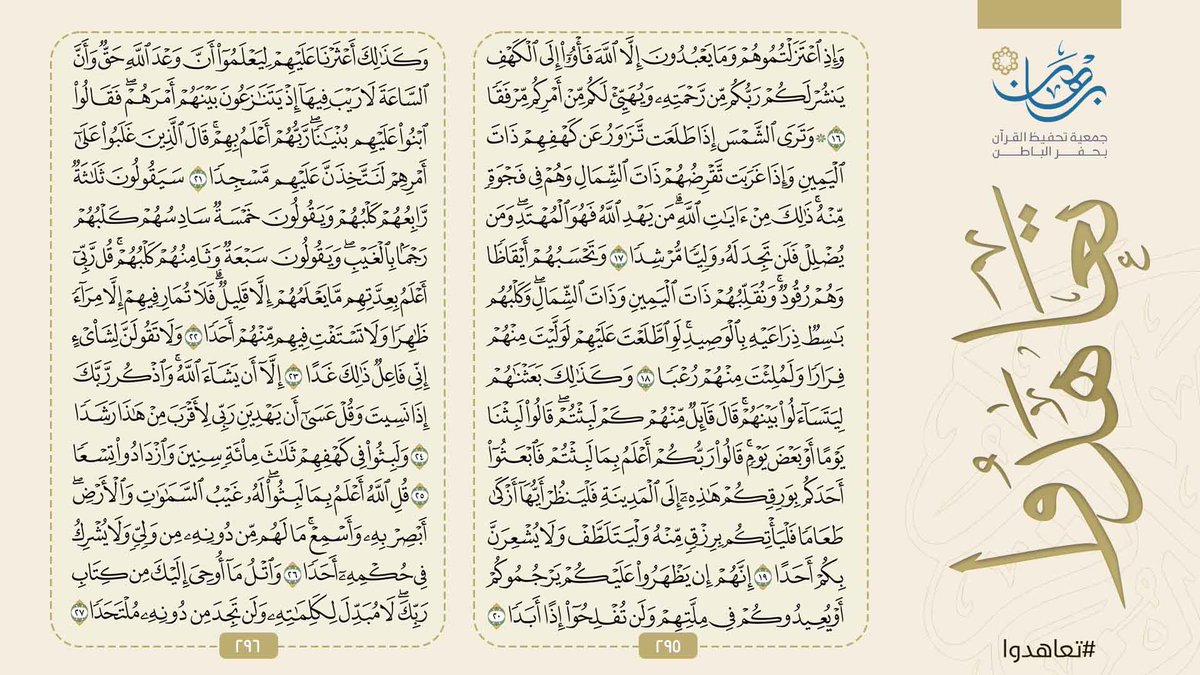 برهان
جمعية تحفيظ القرآن
بحفر الباطن
تعاهدوا
#تعاهدوا
وَإِذِ ٱعۡتَزَلۡتُمُوهُمۡ وَمَا يَعۡبُدُونَ إِلَّا ٱللَّهَ فَأۡوُۥٓاْ إِلَى ٱلۡكَهۡفِ
يَنشُرۡ لَكُمۡ رَبُّكُم مِّن رَّحۡمَتِهِۦ وَيُهَيِّئۡ لَكُم مِّنۡ أَمۡرِكُم مِّرۡفَقٗا
١٦ ۞ وَتَرَى ٱلشَّمۡسَ إِذَا طَلَعَت تَّزَٰوَرُ عَن كَهۡفِهِمۡ ذَاتَ
ٱلۡيَمِينِ وَإِذَا غَرَبَت تَّقۡرِضُهُمۡ ذَاتَ ٱلشِّمَالِ وَهُمۡ فِي فَجۡوَةٖ
مِّنۡهُۚ ذَٰلِكَ مِنۡ ءَايَٰتِ ٱللَّهِۗ مَن يَهۡدِ ٱللَّهُ فَهُوَ ٱلۡمُهۡتَدِۖ وَمَن
يُضۡلِلۡ فَلَن تَجِدَ لَهُۥ وَلِيّٗا مُّرۡشِدٗا ١٧ وَتَحۡسَبُهُمۡ أَيۡقَاظٗا
وَهُمۡ رُقُودٞۚ وَنُقَلِّبُهُمۡ ذَاتَ ٱلۡيَمِينِ وَذَاتَ ٱلشِّمَالِۖ وَكَلۡبُهُم
بَٰسِطٞ ذِرَاعَيۡهِ بِٱلۡوَصِيدِۚ لَوِ ٱطَّلَعۡتَ عَلَيۡهِمۡ لَوَلَّيۡتَ مِنۡهُمۡ
فِرَارٗا وَلَمُلِئۡتَ مِنۡهُمۡ رُعۡبٗا ١٨ وَكَذَٰلِكَ بَعَثۡنَٰهُمۡ
لِيَتَسَآءَلُواْ بَيۡنَهُمۡۚ قَالَ قَآئِلٞ مِّنۡهُمۡ كَمۡ لَبِثۡتُمۡۖ قَالُواْ لَبِثۡنَا
يَوۡمًا أَوۡ بَعۡضَ يَوۡمٖۚ قَالُواْ رَبُّكُمۡ أَعۡلَمُ بِمَا لَبِثۡتُمۡ فَٱبۡعَثُوٓاْ
أَحَدَكُم بِوَرِقِكُمۡ هَٰذِهِۦٓ إِلَى ٱلۡمَدِينَةِ فَلۡيَنظُرۡ أَيُّهَآ أَزۡكَىٰ
طَعَامٗا فَلۡيَأۡتِكُم بِرِزۡقٖ مِّنۡهُ وَلۡيَتَلَطَّفۡ وَلَا يُشۡعِرَنَّ
بِكُمۡ أَحَدًا ١٩ إِنَّهُمۡ إِن يَظۡهَرُواْ عَلَيۡكُمۡ يَرۡجُمُوكُمۡ
أَوۡ يُعِيدُوكُمۡ فِي مِلَّتِهِمۡ وَلَن تُفۡلِحُوٓاْ إِذًا أَبَدٗا ٢٠
٢٩٥
وَكَذَٰلِكَ أَعۡثَرۡنَا عَلَيۡهِمۡ لِيَعۡلَمُوٓاْ أَنَّ وَعۡدَ ٱللَّهِ حَقّٞ وَأَنَّ
ٱلسَّاعَةَ لَا رَيۡبَ فِيهَآ إِذۡ يَتَنَٰزَعُونَ بَيۡنَهُمۡ أَمۡرَهُمۡۖ فَقَالُواْ
ٱبۡنُواْ عَلَيۡهِم بُنۡيَٰنٗاۖ رَّبُّهُمۡ أَعۡلَمُ بِهِمۡۚ قَالَ ٱلَّذِينَ غَلَبُواْ عَلَىٰٓ
أَمۡرِهِمۡ لَنَتَّخِذَنَّ عَلَيۡهِم مَّسۡجِدٗا ٢١ سَيَقُولُونَ ثَلَٰثَةٞ
رَّابِعُهُمۡ كَلۡبُهُمۡ وَيَقُولُونَ خَمۡسَةٞ سَادِسُهُمۡ كَلۡبُهُمۡ
رَجۡمَۢا بِٱلۡغَيۡبِۖ وَيَقُولُونَ سَبۡعَةٞ وَثَامِنُهُمۡ كَلۡبُهُمۡۚ قُل رَّبِّيٓ
أَعۡلَمُ بِعِدَّتِهِم مَّا يَعۡلَمُهُمۡ إِلَّا قَلِيلٞۗ فَلَا تُمَارِ فِيهِمۡ إِلَّا مِرَآءٗ
ظَٰهِرٗا وَلَا تَسۡتَفۡتِ فِيهِم مِّنۡهُمۡ أَحَدٗا ٢٢ وَلَا تَقُولَنَّ لِشَاْيۡءٍ
إِنِّي فَاعِلٞ ذَٰلِكَ غَدًا ٢٣ إِلَّآ أَن يَشَآءَ ٱللَّهُۚ وَٱذۡكُر رَّبَّكَ
إِذَا نَسِيتَ وَقُلۡ عَسَىٰٓ أَن يَهۡدِيَنِ رَبِّي لِأَقۡرَبَ مِنۡ هَٰذَا رَشَدٗا
٢٤ وَلَبِثُواْ فِي كَهۡفِهِمۡ ثَلَٰثَ مِاْئَةٖ سِنِينَ وَٱزۡدَادُواْ تِسۡعٗا
٢٥ قُلِ ٱللَّهُ أَعۡلَمُ بِمَا لَبِثُواْۖ لَهُۥ غَيۡبُ ٱلسَّمَٰوَٰتِ وَٱلۡأَرۡضِۖ
أَبۡصِرۡ بِهِۦ وَأَسۡمِعۡۚ مَا لَهُم مِّن دُونِهِۦ مِن وَلِيّٖ وَلَا يُشۡرِكُ
فِي حُكۡمِهِۦٓ أَحَدٗا ٢٦ وَٱتۡلُ مَآ أُوحِيَ إِلَيۡكَ مِن كِتَابِ
رَبِّكَۖ لَا مُبَدِّلَ لِكَلِمَٰتِهِۦ وَلَن تَجِدَ مِن دُونِهِۦ مُلۡتَحَدٗا ٢٧
٢٩٦